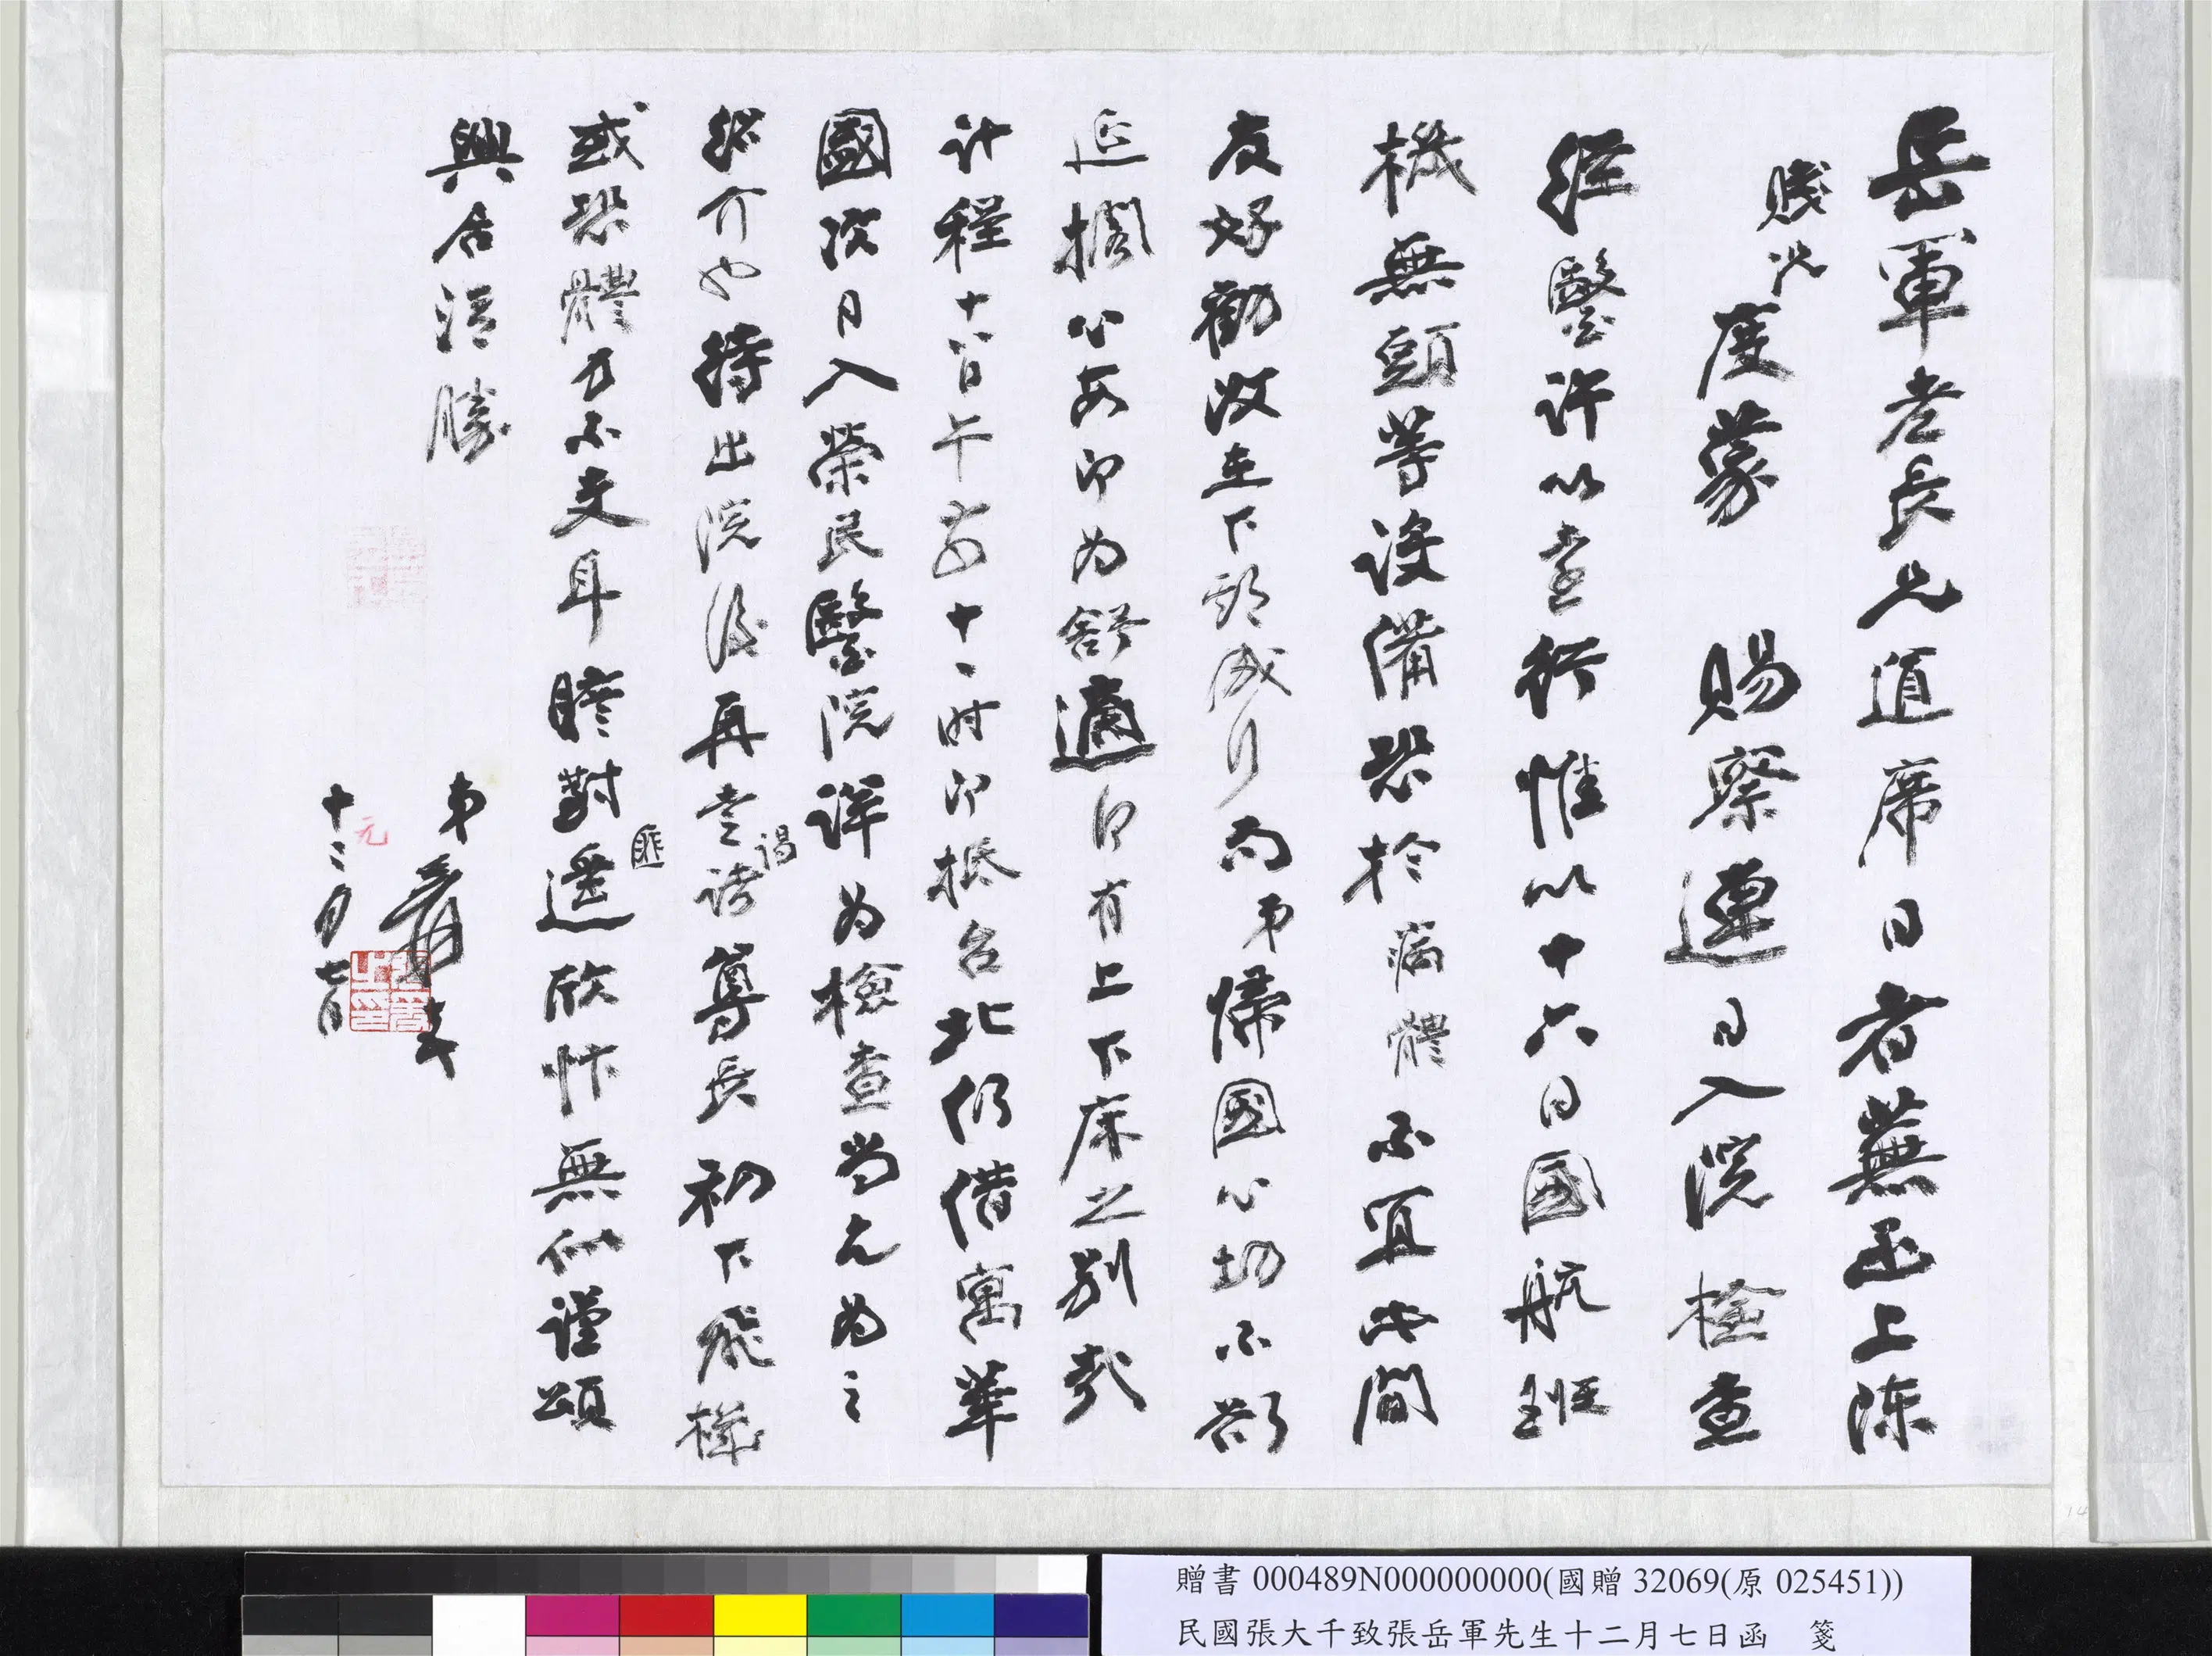 岳軍老長兄道席日者蕪函上陳
賤況
度蒙 賜察連日入院檢查
經醫許以遠行惟以十六日國航班
機無頭等設備恐於病體不宜此間
友好勸改至下期成行而弟歸國心切不欲
延擱心安即為舒適何有上下床之別哉
計程十八日午前十一時即抵台北仍借寓華
國次日入榮民醫院詳為檢查尚乞為之
紹介也待出院後再走詣尊長初下飛機
謁
或恐體力不支耳瞻對匪遙欣忭無似謹頌
興居潭勝
弟爰頓首
十二月七日
元
贈書 000489N000000000(國贈 32069(原 025451))
民國張大千致張岳軍先生十二月七日函 箋